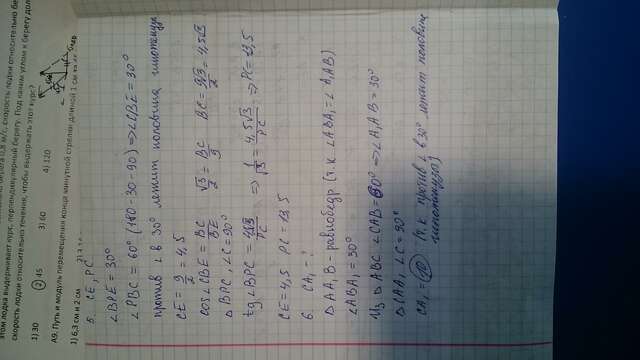 этом лодка выдерживает курс, перпендикулярный берегу. Под каким углом к берегу
скорость лодки относительно течения, чтобы выдержать этот курс?
1) 30 2) 45 3) 60 4) 120
А9. Путь и модуль перемещения конца минутной стрелки длиной 1 см за
1) 6,3 см и 2 см
5. CE, PC
∠BPE = 30°
∠PBC = 60° (180-30-90) ⇒ ∠CBE = 30°
против ∠ в 30° лежит половина гипотенузы
CE = 9/2 = 4,5
cos∠CBE = BC/BE √3/2 = BC/9 BC = 9√3/2 = 4,5√3
△ BPC, ∠C = 90°
tg ∠BPC = 4,5√3/PC ⇒ 1/√3 = 4,5√3/PC ⇒ PC = 13,5
CE = 4,5 PC = 13,5
6. CA₁ - ?
△ AA₁B - равнобедр (т.к ∠ABA₁ = ∠A₁AB)
∠ABA₁ = 30°
Из △ABC ∠CAB = 60° ⇒ ∠A₁AB = 30°
△CAA₁ ∠C = 90°
CA₁ = 10 (т.к против ∠ в 30° лежит половина гипотенузы)